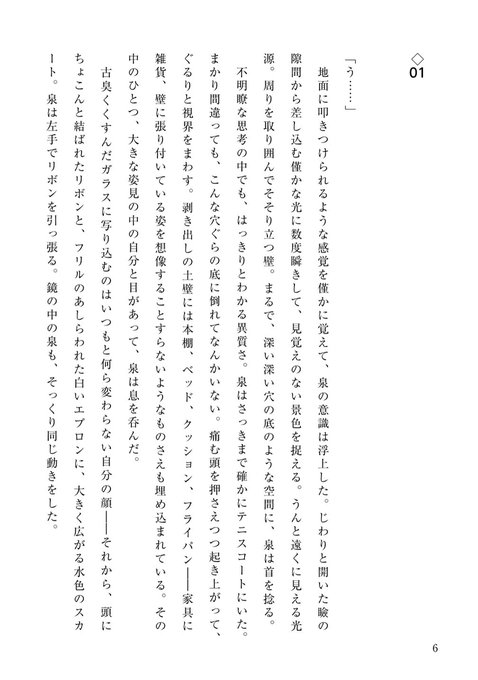 ◇01
「う……」
　地面に叩きつけられるような感覚を僅かに覚えて、泉の意識は浮上した。じわりと開いた瞼の
隙間から差し込む僅かな光に数度瞬きして、見覚えのない景色を捉える。うんと遠くに見える光
源。周りを取り囲んでそそり立つ壁。まるで、深い深い穴の底のような空間に、泉は首を捻る。
　不明瞭な思考の中でも、はっきりとわかる異質さ。泉はさっきまで確かにテニスコートにいた。
まかり間違っても、こんな穴ぐらの底に倒れてなんかいない。痛む頭を押さえつつ起き上がって、
ぐるりと視界をまわす。剥き出しの土壁には本棚、ベッド、クッション、フライパン――家具に
雑貨、壁に張り付いている姿を想像することすらないようなものさえも埋め込まれている。その
中のひとつ、大きな姿見の中の自分と目があって、泉は息を呑んだ。
　古臭くくすんだガラスに写り込むのはいつもと何ら変わらない自分の顔――それから、頭に
ちょこんと結ばれたリボンと、フリルのあしらわれた白いエプロンに、大きく広がる水色のスカ
ート。泉は左手でリボンを引っ張る。鏡の中の泉も、そっくり同じ動きをした。
6